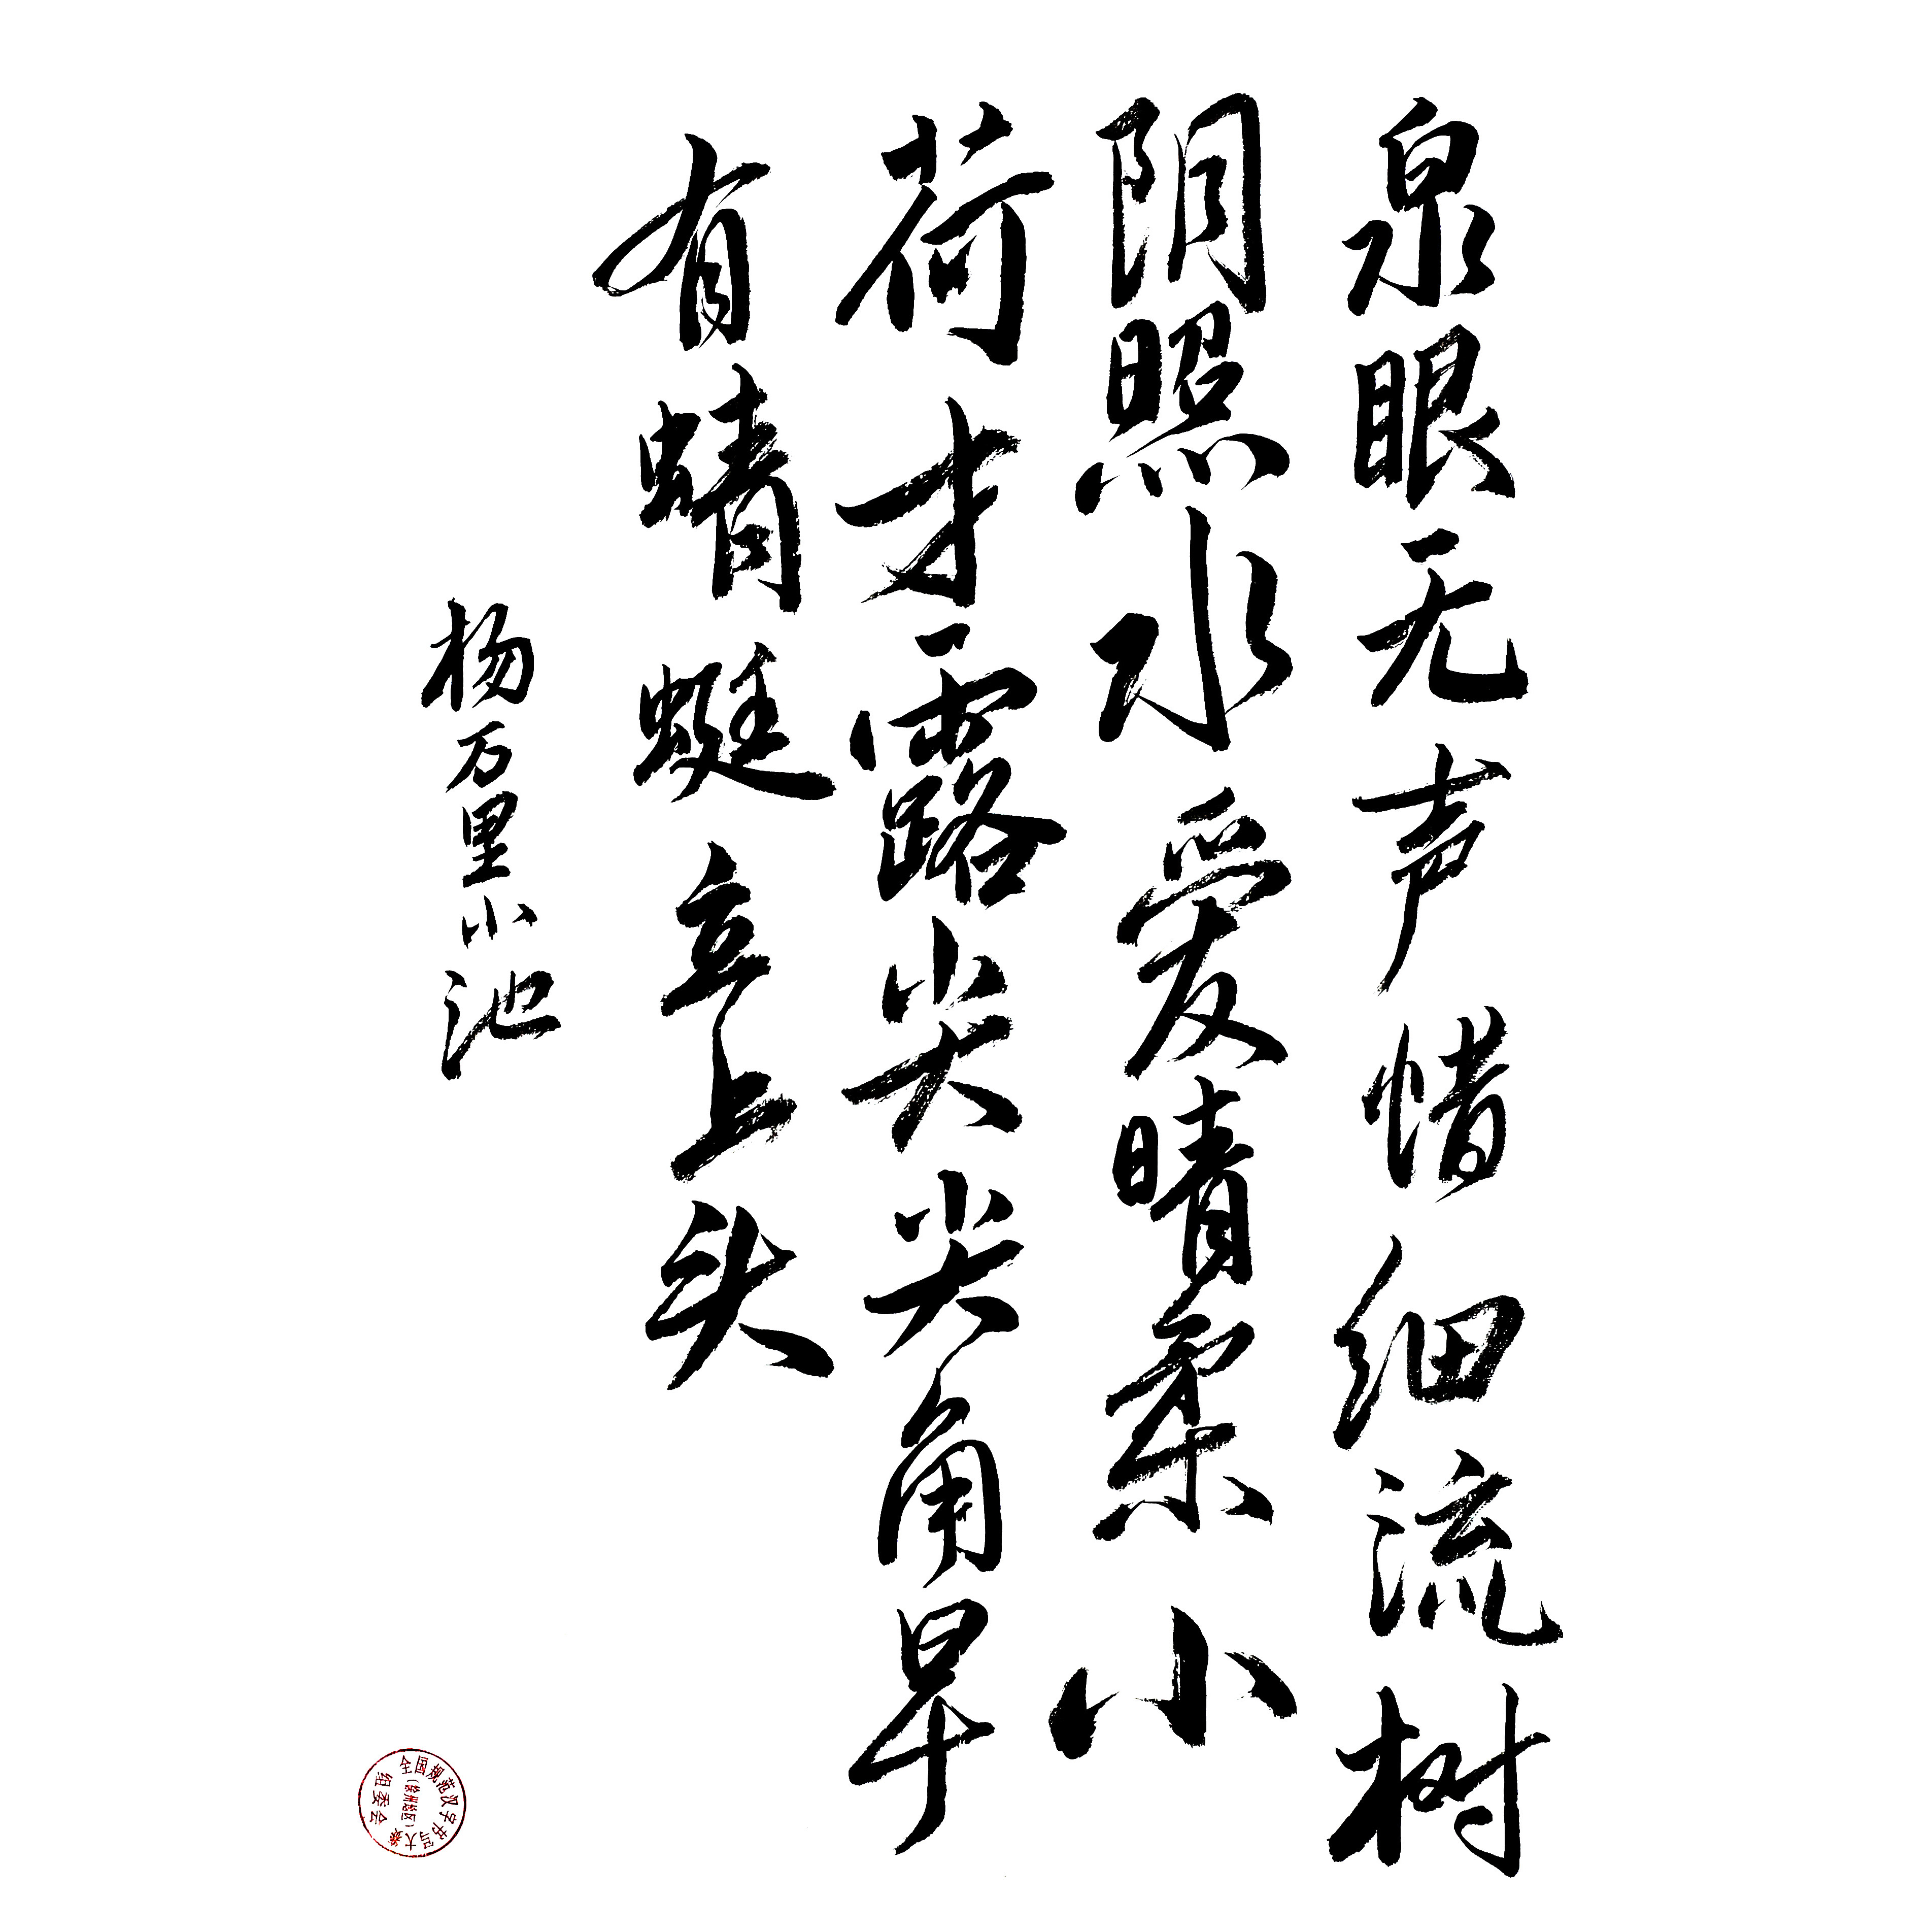 泉眼无声惜细流树
阴照水爱晴柔小
荷才露尖尖角早
有蜻蜓立上头
杨万里小池
全国规范汉字书写大赛
组委会